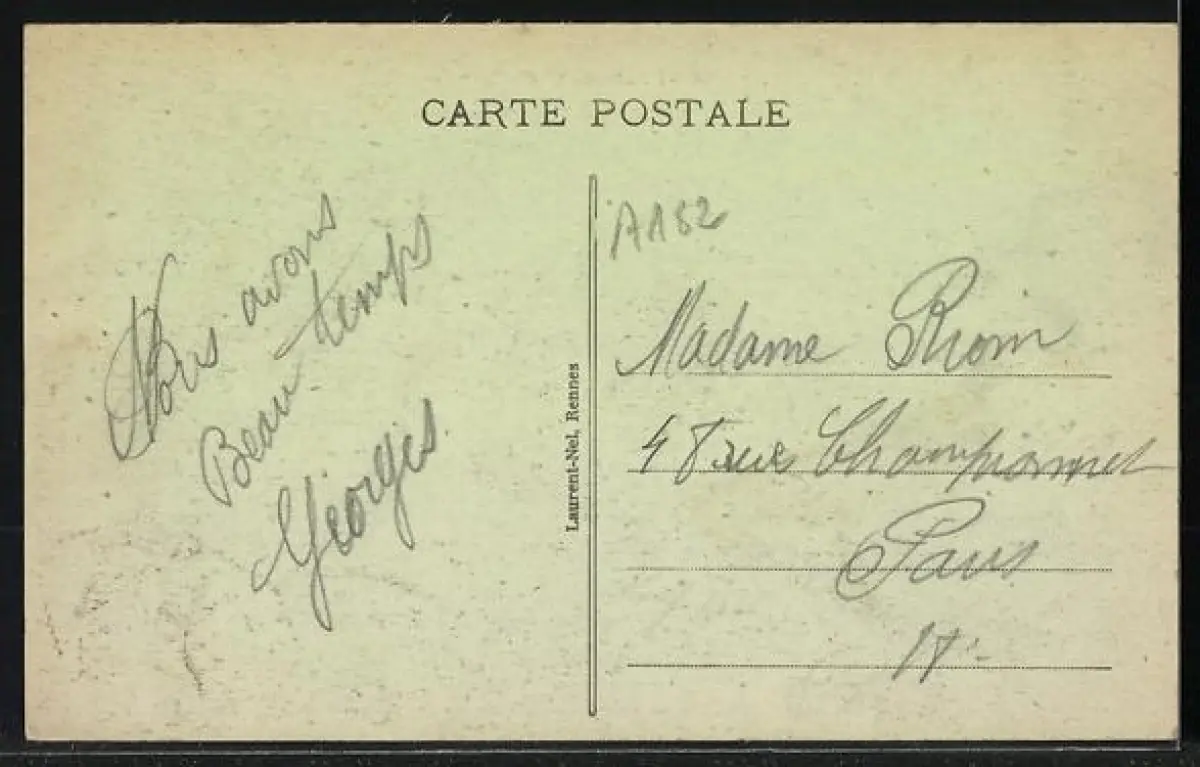 CARTE POSTALE
Nous avons
Beau temps
Georges
Laurent-Nel, Rennes
A152
Madame Riom
48 rue Championnet
Paris
18